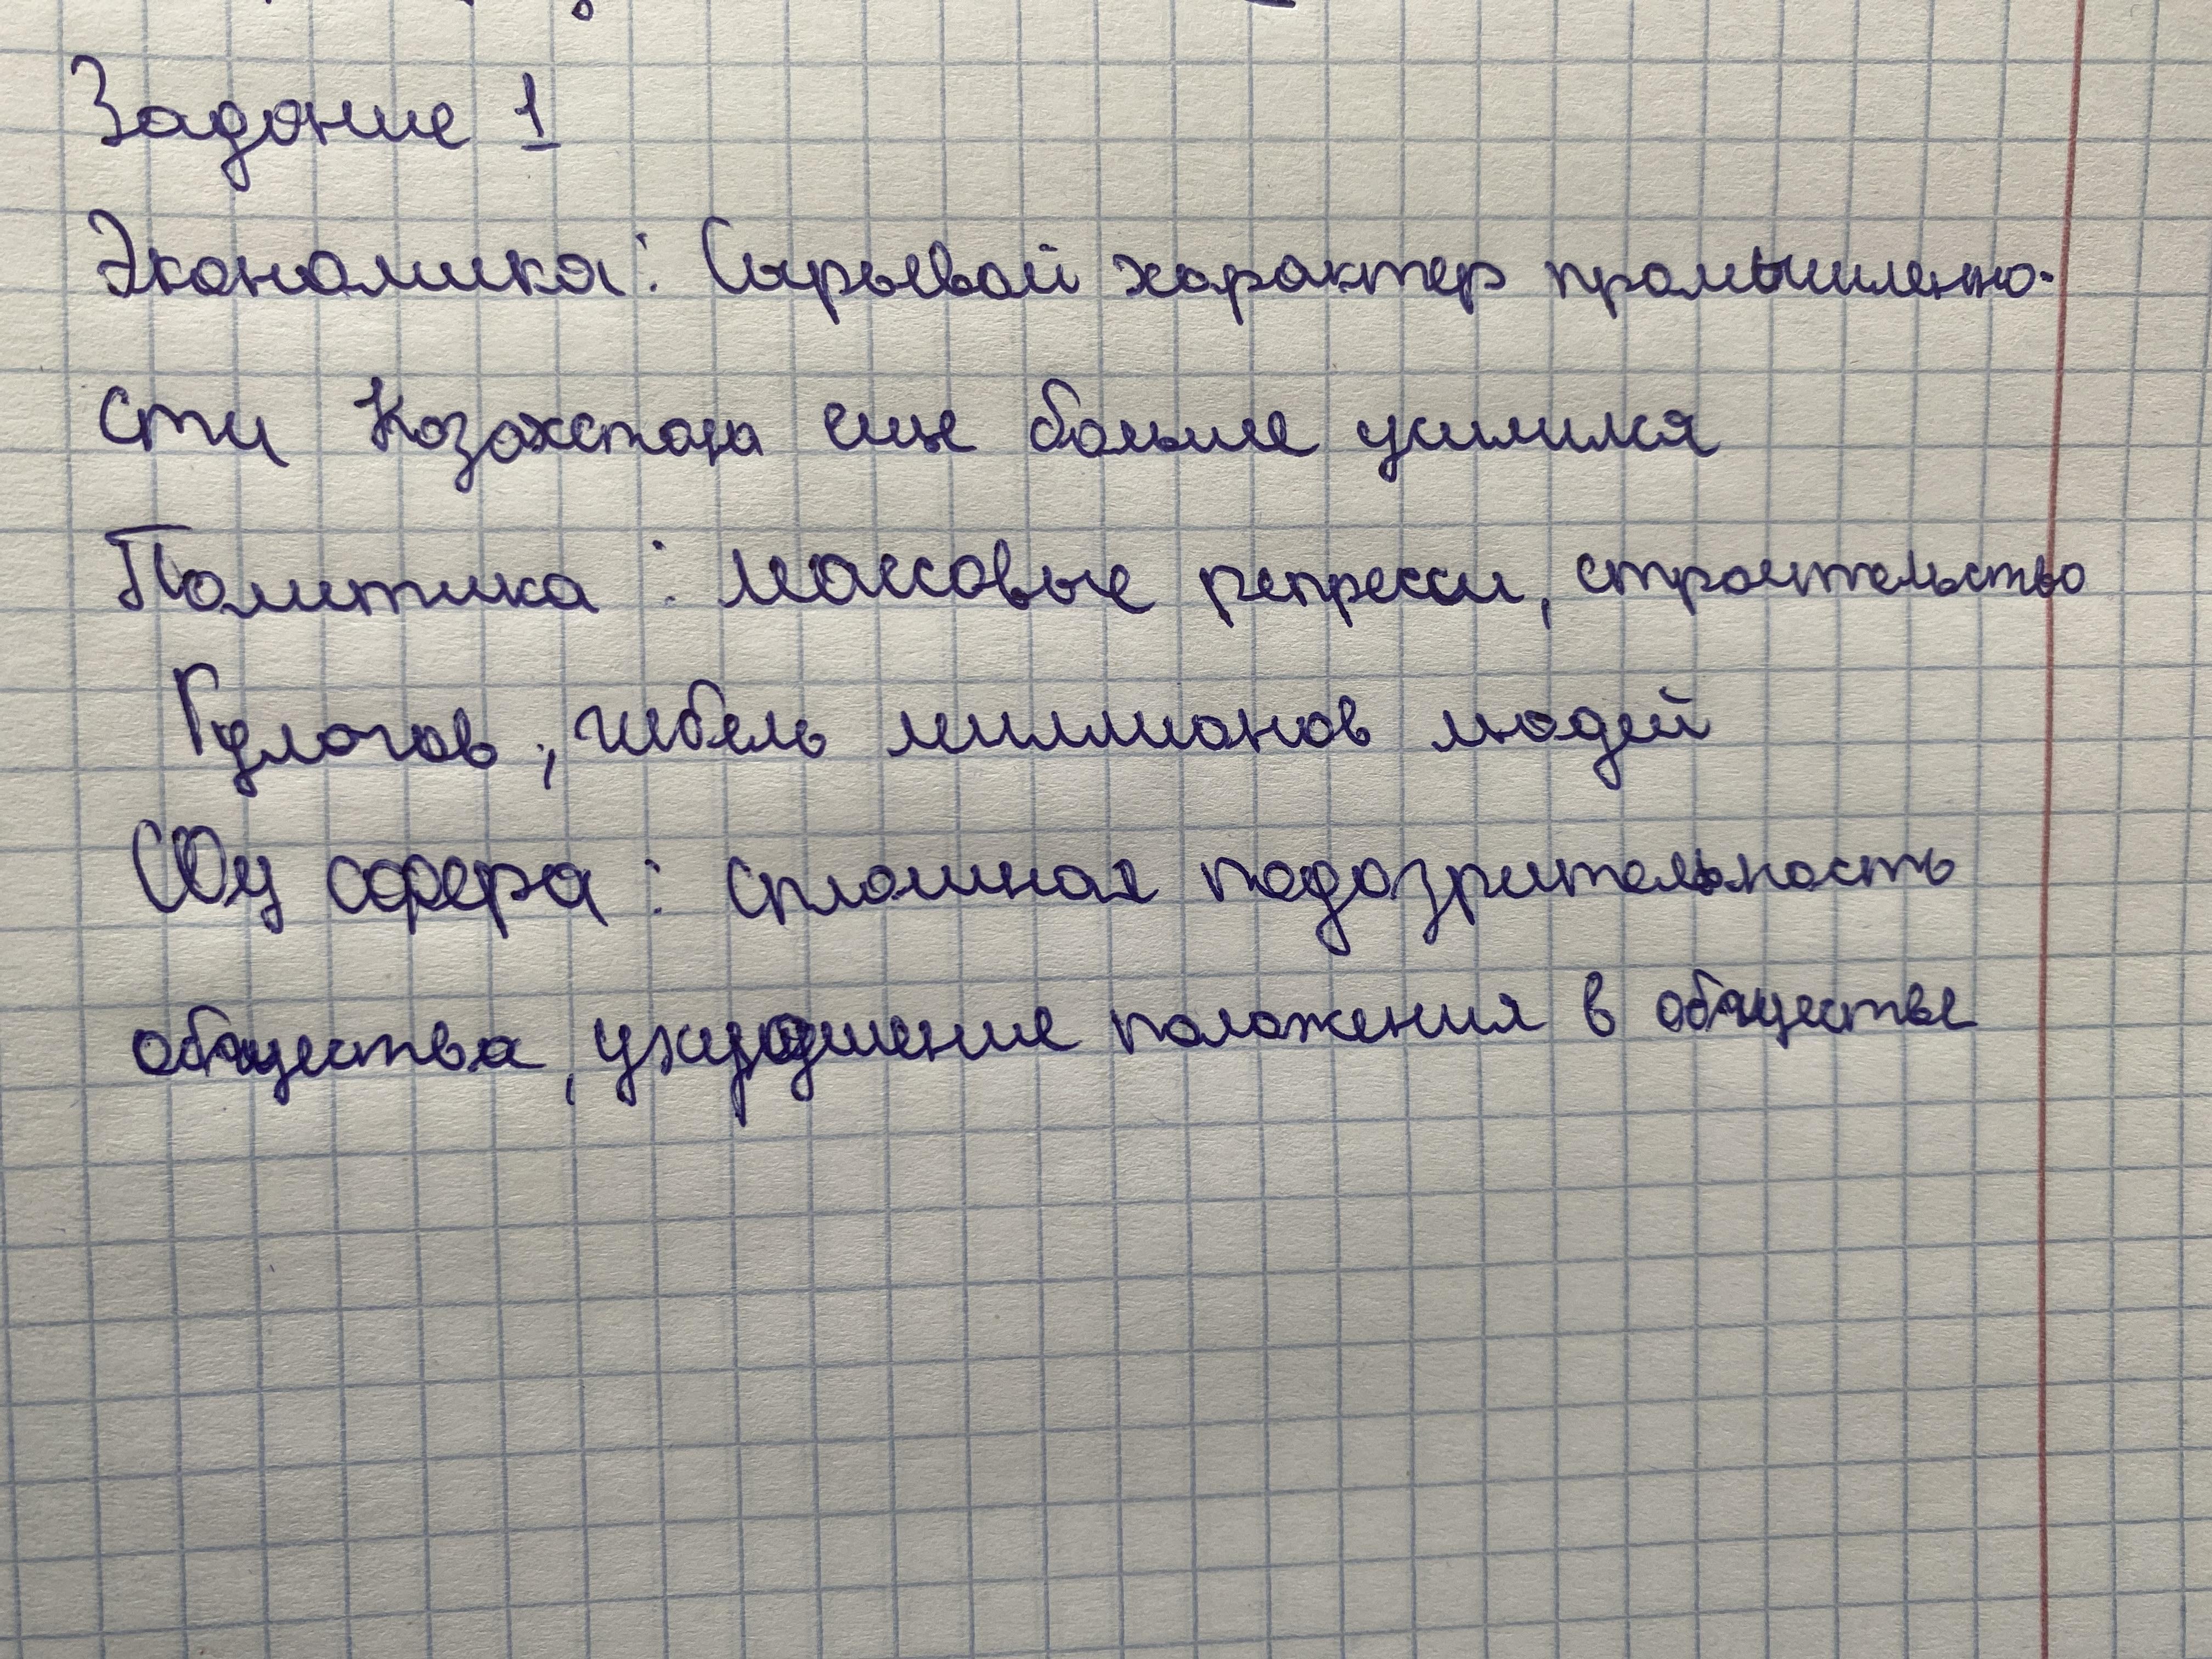 Задание 1
Экономика: Сырьевой характер промышленно-
сти Казахстана еще больше усилился
Политика: массовые репресси, строительство
Гулагов, гибель миллионов людей
Соц сфера: сплошная подозрительность
общества, ухудшение положения в обществе